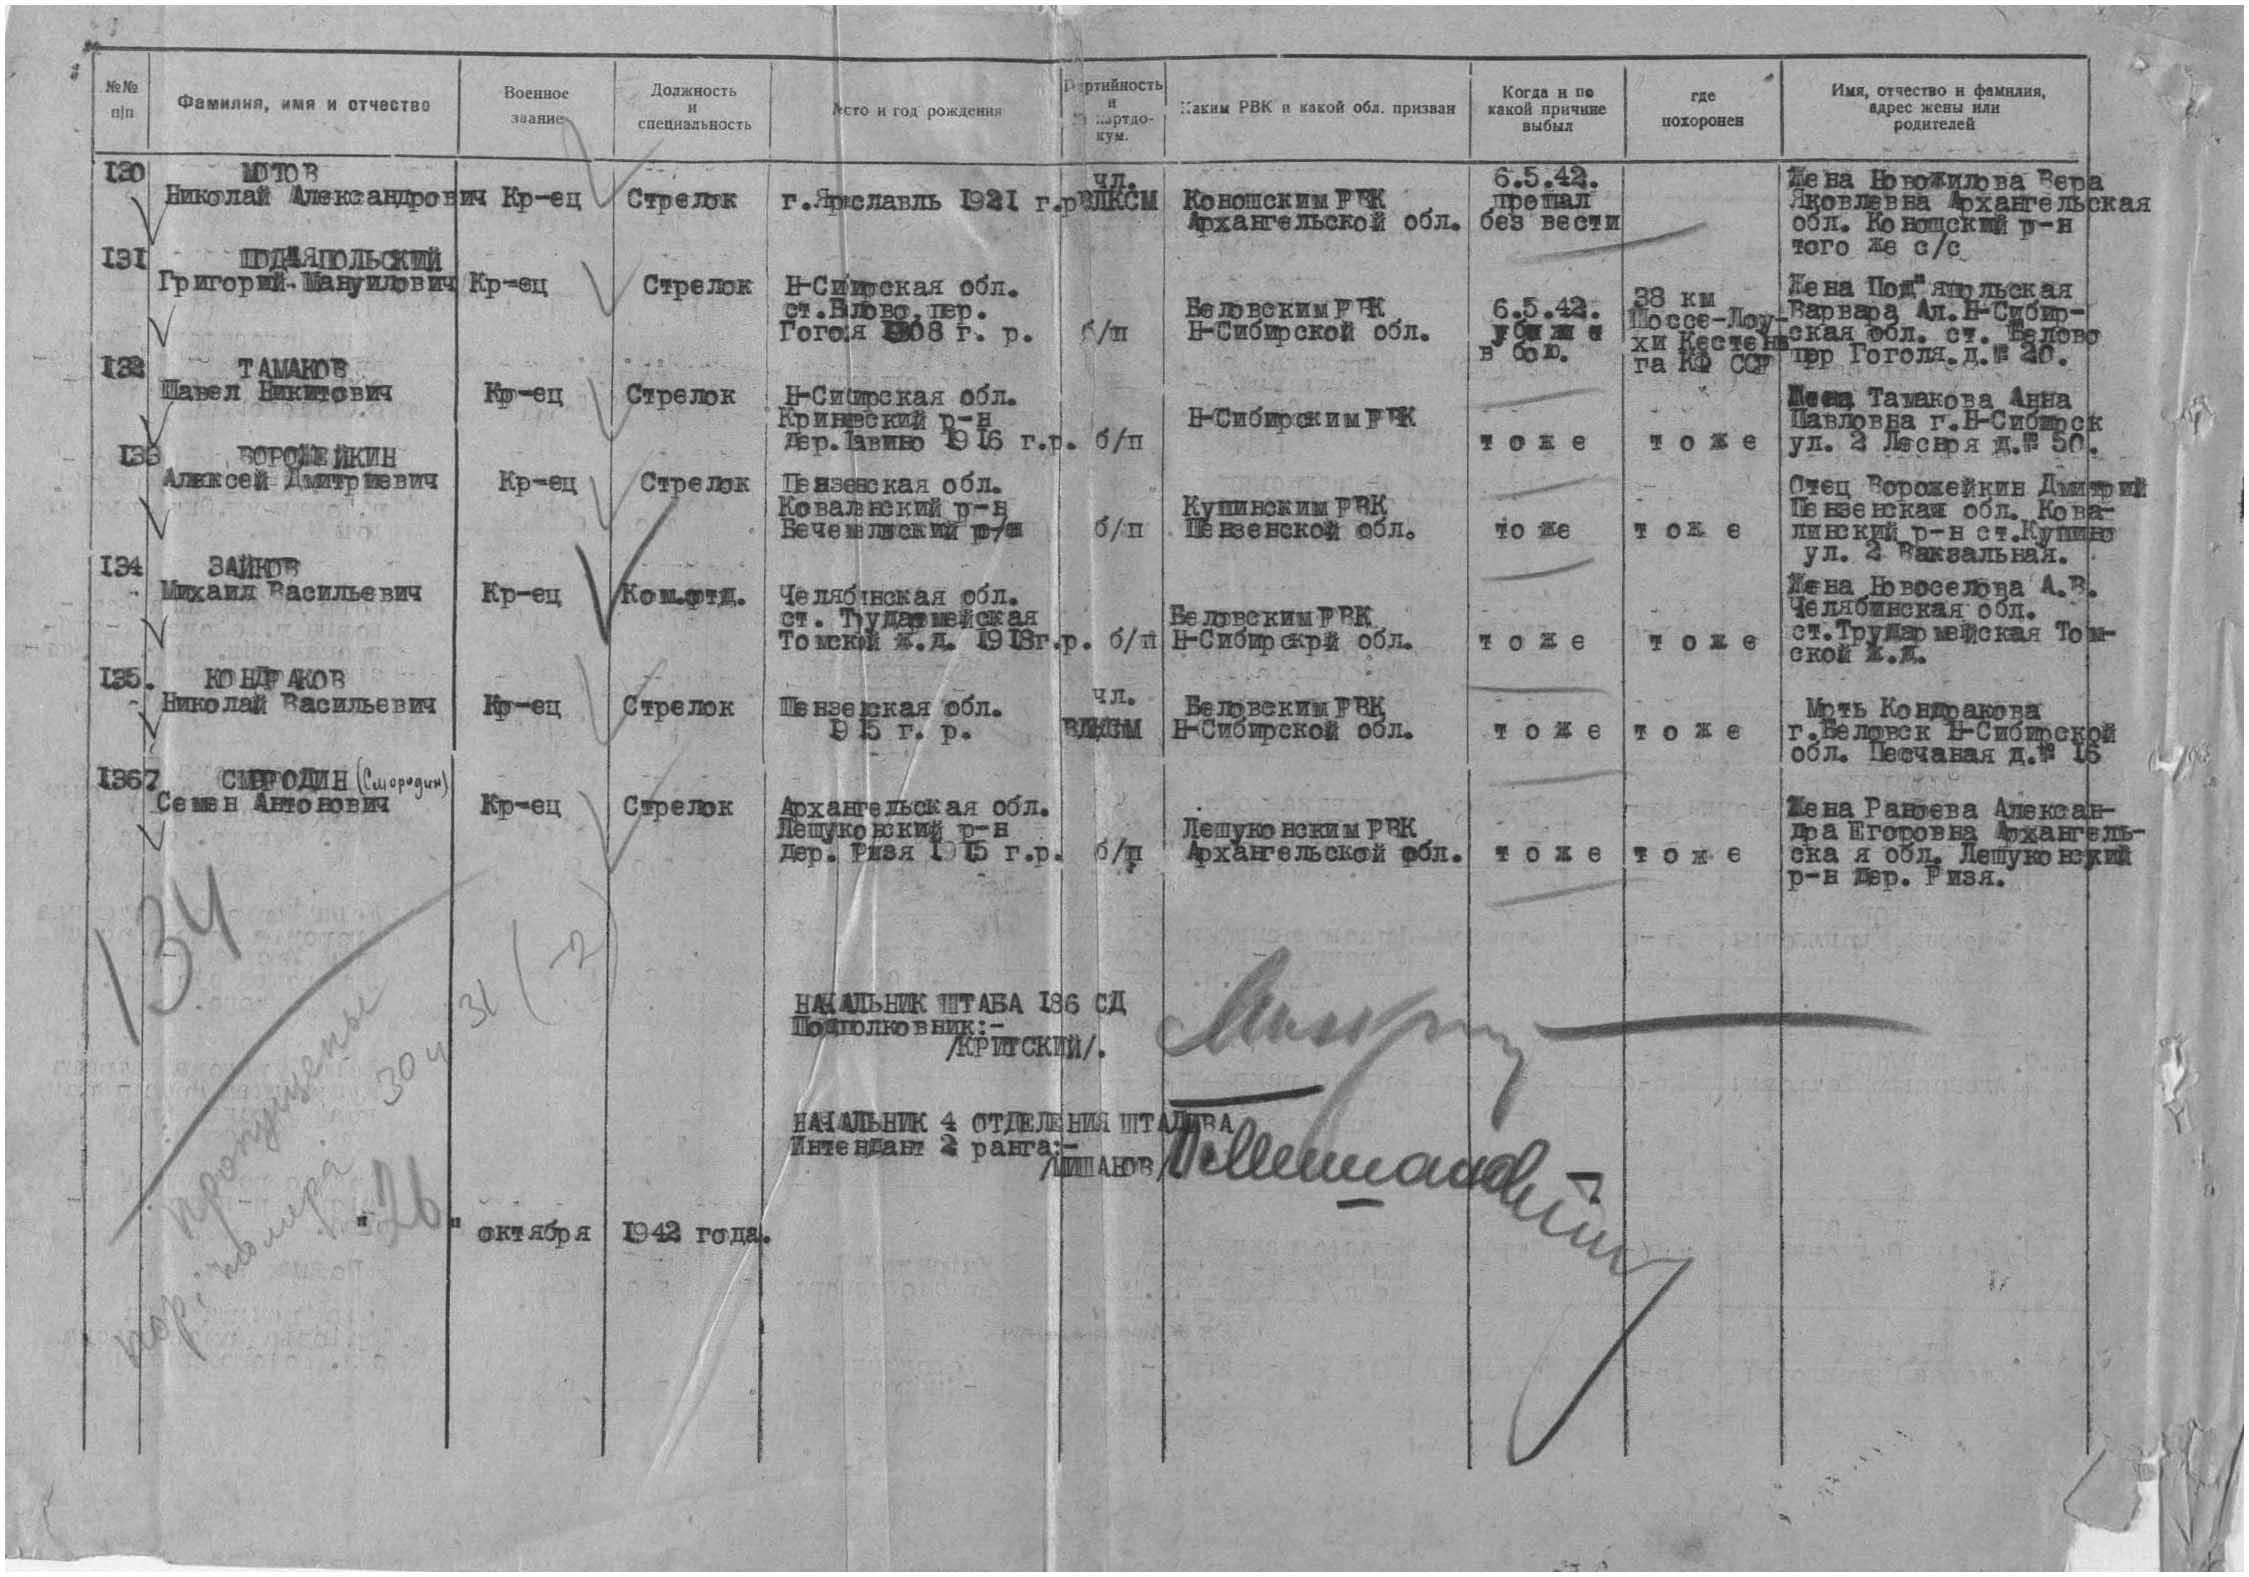 №№ п/п
Фамилия, имя и отчество
Военное звание
Должность и специальность
Место и год рождения
Партийность и № партдокум.
Каким РВК и какой обл. призван
Когда и по какой причине выбыл
где похоронен
Имя, отчество и фамилия, адрес жены или родителей
130 МОТОВ
Николай Александрович Кр-ец Стрелок г.Ярославль 1921 г.р чл. ВЛКСМ
Коношским РВК
Архангельской обл.
6.5.42.
пропал
без вести
Жена Новожилова Вера
Яковлевна Архангельская
обл. Коношский р-н
того же с/с
131 ПОД"ЯПОЛЬСКИЙ
Григорий Мануилович Кр-ец Стрелок
Н-Сибирская обл.
ст.Белово, пер.
Гоголя 1908 г. р. б/п
Беловским РВК
Н-Сибирской обл.
6.5.42.
убит
в бою.
38 км
Шоссе-Лоу-
хи Кестень
га КФ ССР
Жена Под"япольская
Варвара Ал. Н-Сибир-
ская обл. ст. Белово
пер Гоголя.д.№ 20.
132 ТАМАКОВ
Павел Никитович Кр-ец Стрелок
Н-Сибирская обл.
дер. 1916 г.р. б/п
Н-Сибирским РВК
тоже тоже
Жена Тамакова Анна
Павловна г.Н-Сибирск
ул. 2 д.№ 50.
133 ВОРОЖЕЙКИН
Алексей Дмитриевич Кр-ец Стрелок
Пензенская обл.
р-н
б/п
РВК
Пензенской обл.
тоже тоже
Отец Ворожейкин Дмитрий
Пензенская обл. Кова-
линский р-н ст.
ул. 2 Вакзальная.
134 ЗАЙКОВ
Михаил Васильевич Кр-ец Ком.отд.
Челябинская обл.
ст. Трудармейская
Томской ж.д. 1918г.р. б/п
Беловским РВК
Н-Сибирской обл.
тоже тоже
Жена Новоселова А.В.
Челябинская обл.
ст.Трудармейская Том-
ской ж.д.
135. КОНДРАКОВ
Николай Васильевич Кр-ец Стрелок
Пензенская обл.
1915 г. р.
чл.
ВЛКСМ
Беловским РВК
Н-Сибирской обл.
тоже тоже
Моть Кондракова
г.Беловск Н-Сибирской
обл. Песчаная д.№ 16
136 СМЕРОДИН (Смородин)
Семен Антонович Кр-ец Стрелок
Архангельская обл.
Лешуковский р-н
дер. Ризя 1915 г.р. б/п
Лешуконским РВК
Архангельской обл.
тоже тоже
Жена Алексан-
дра Егоровна Архангель-
ская обл. Лешуконский
р-н дер. Ризя.
134
31 (-2)
пропущены
пор. номера 30 и
НАЧАЛЬНИК ШТАБА 186 СД
Подполковник:-
/КРИТСКИЙ/.
НАЧАЛЬНИК 4 ОТДЕЛЕНИЯ ШТАДИВА
Интендант 2 ранга:-
/МИШАКОВ/
" 26 " октября 1942 года.